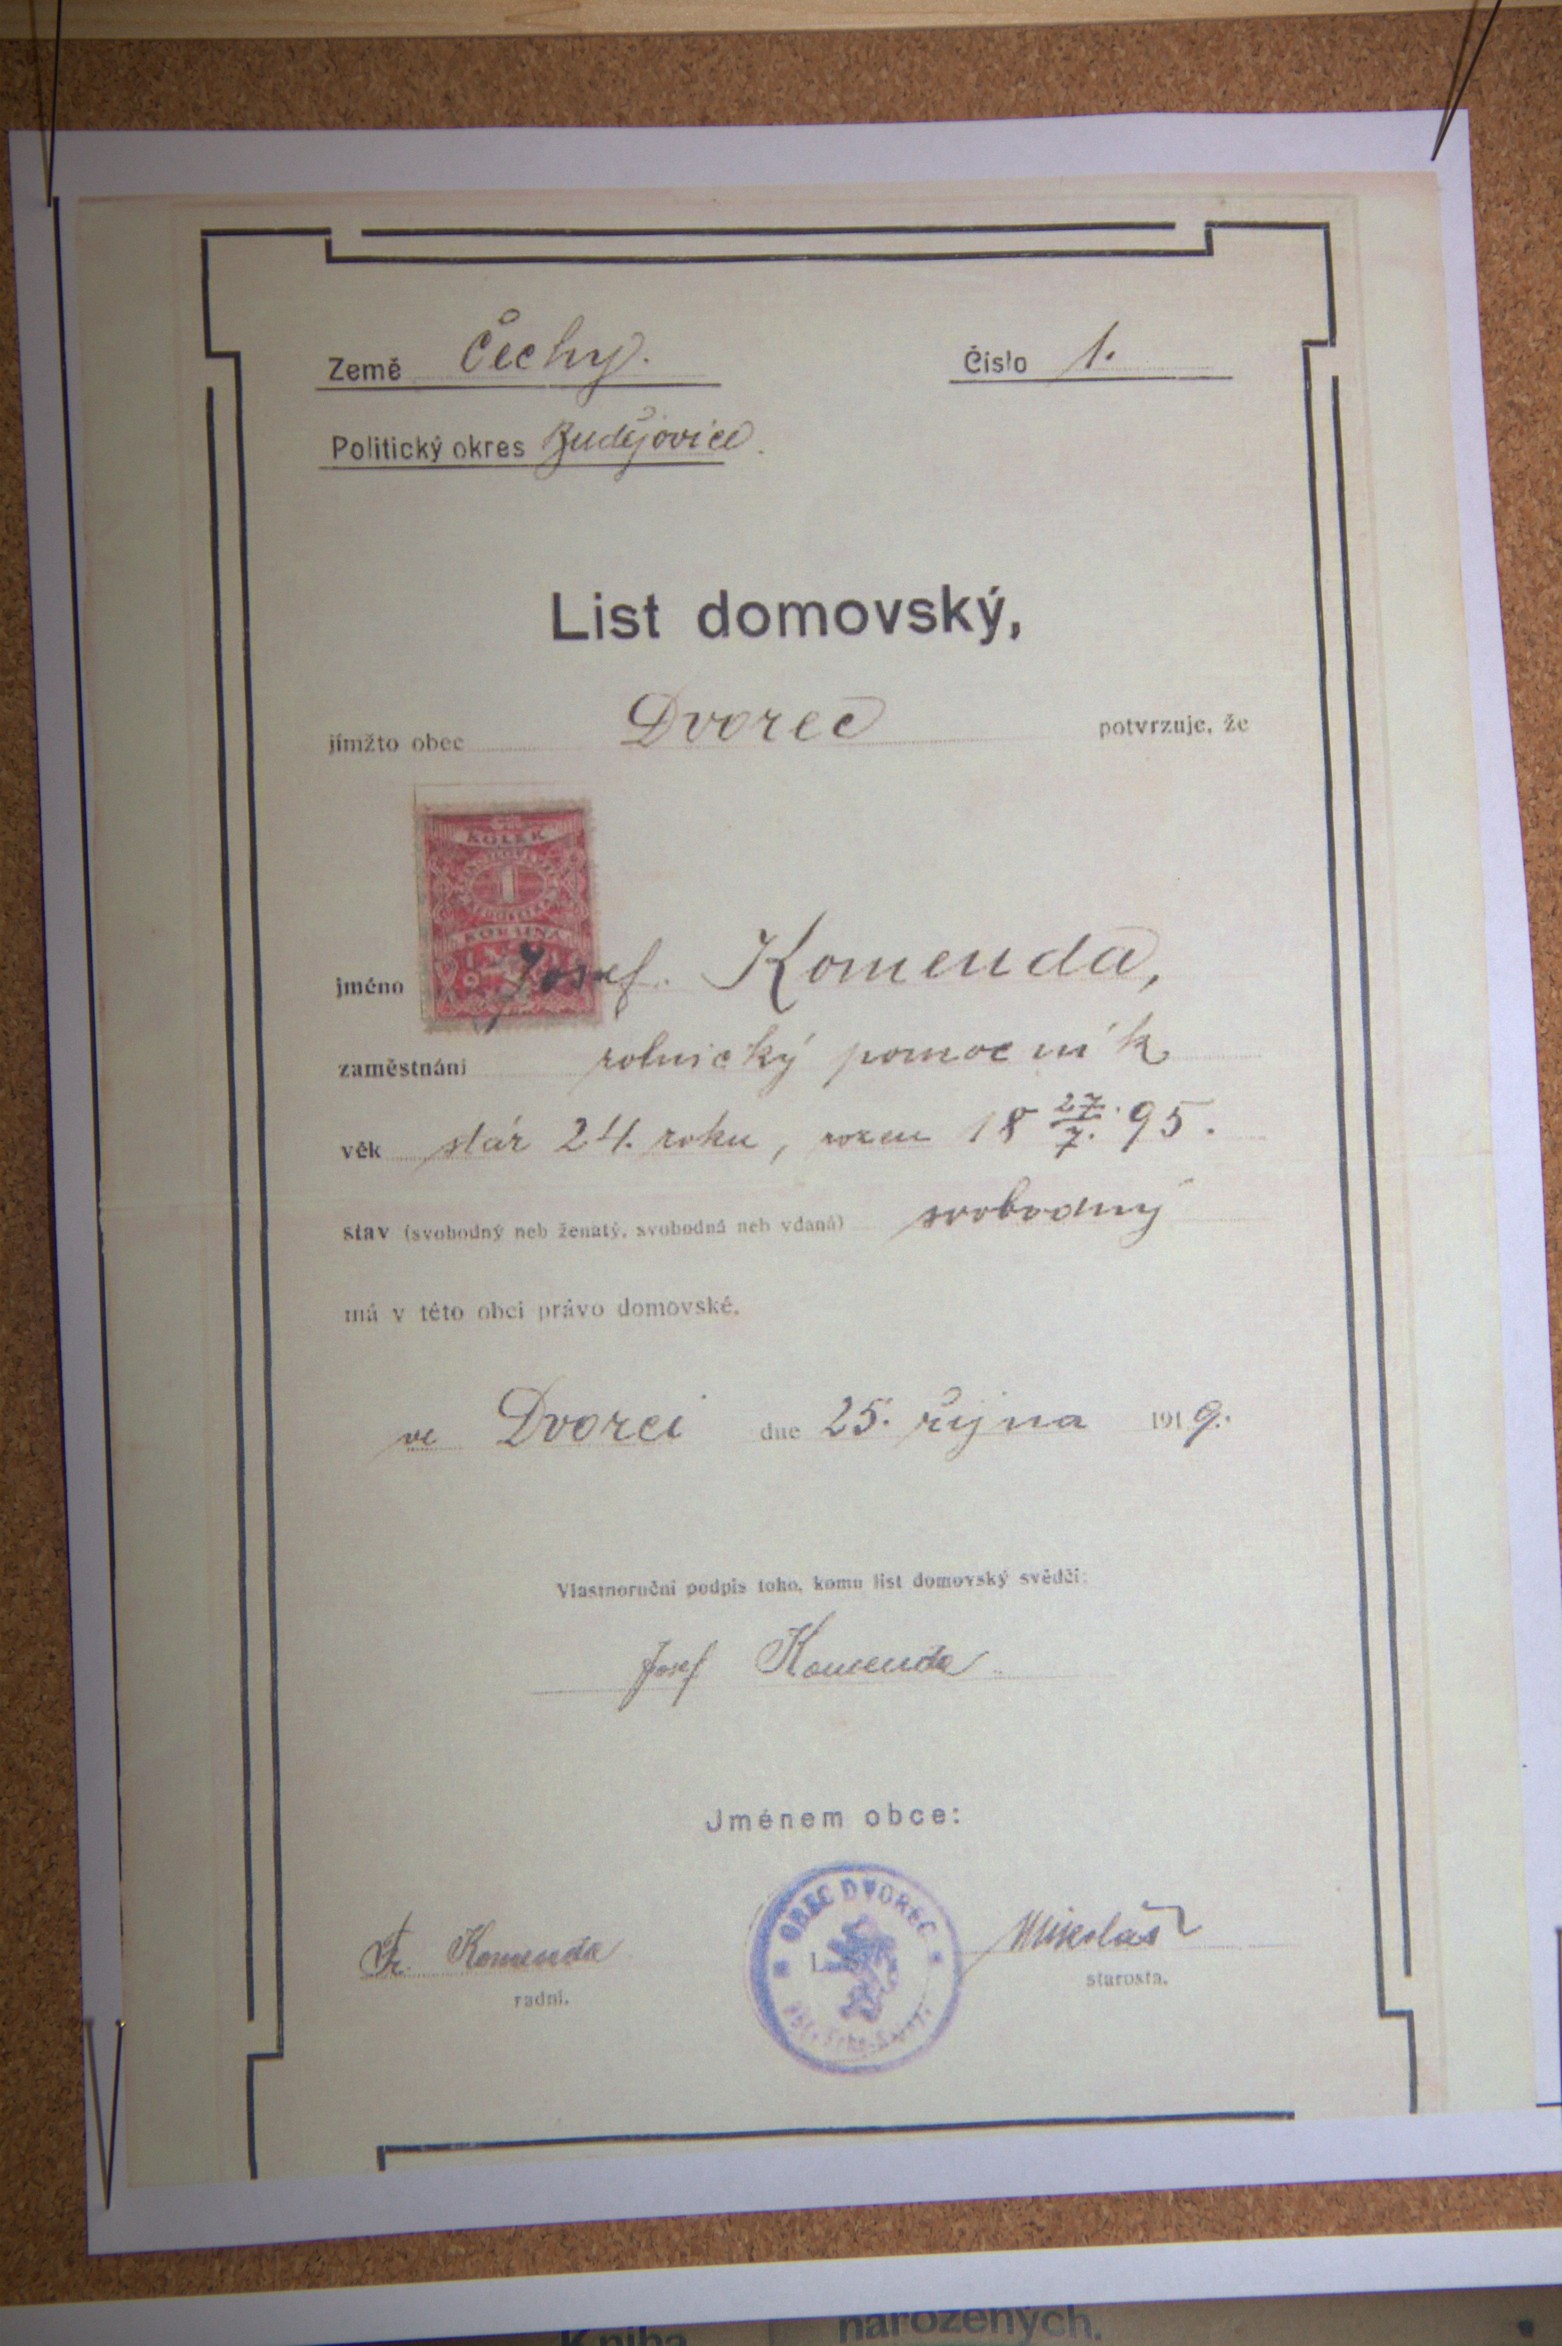 Země Čechy. Číslo 1.
Politický okres Budějovice.
List domovský,
jímžto obec Dvorec potvrzuje, že
KOLEK
1
KORUNA
jméno Josef Komenda,
zaměstnání rolnický pomocník
věk stár 24. roku, rozen 18 27/7. 95.
stav (svobodný neb ženatý, svobodná neb vdaná) svobodný
má v této obci právo domovské.
ve Dvorci dne 25. října 1919.
Vlastnoruční podpis toho, komu list domovský svědčí:
Josef Komenda
Jménem obce:
OBEC DVOREC
Fr. Komenda Mikoláš
radní. starosta.
Kniha narozených.